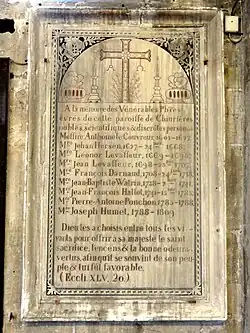 A la mémoire des Vénérables Pbres
curés de cette paroisse de
nobles scientifiques & discrètes personnes
Messire Anthoine le Couvreur 1601-16
Mre Jehan Hersen, 1627-24 1668
Mre Leonor Levasseur, 1669-
Mre Jean Levasseur, 1698-
Mre François Darnaud, 1709-24
Mre Jean Baptiste Watrin, 1738-
Mre Jean-François Hallot,
Mre Pierre-Antoine Ponchon, 1785-1788
Mre Joseph Humet, 1788-1803
Dieu les a choisis entre tous les vi-
vants pour offrir à sa majesté le saint
sacrifice, l'encens & la bonne odeur
vertus, afin qu'il se souvint de son peu-
ple & lui fut favorable.
(Eccli XLV. 20.)